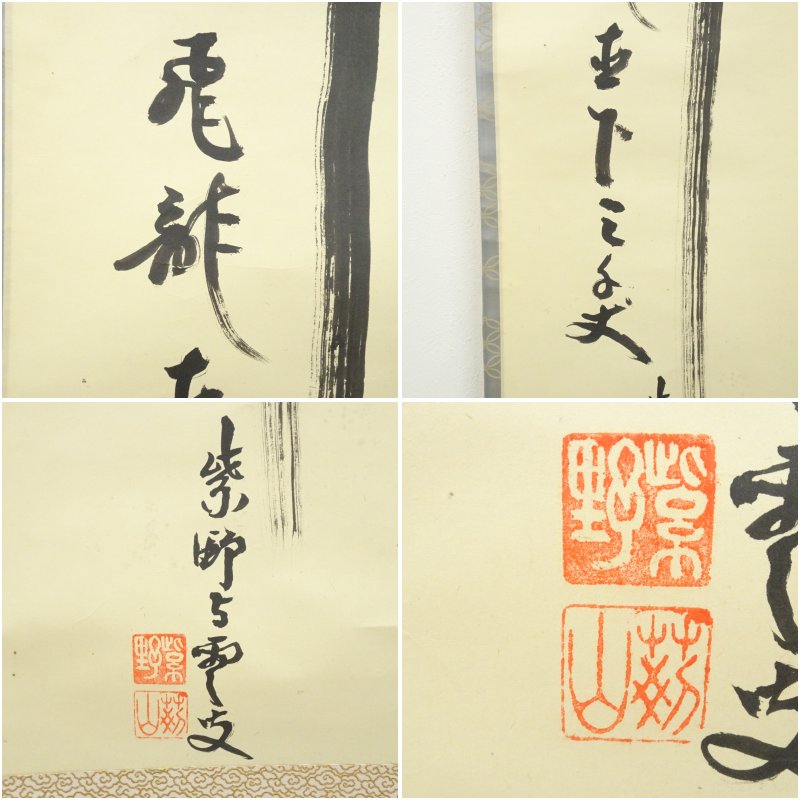 飛龍
直下三千丈
紫野与雲叟
紫野